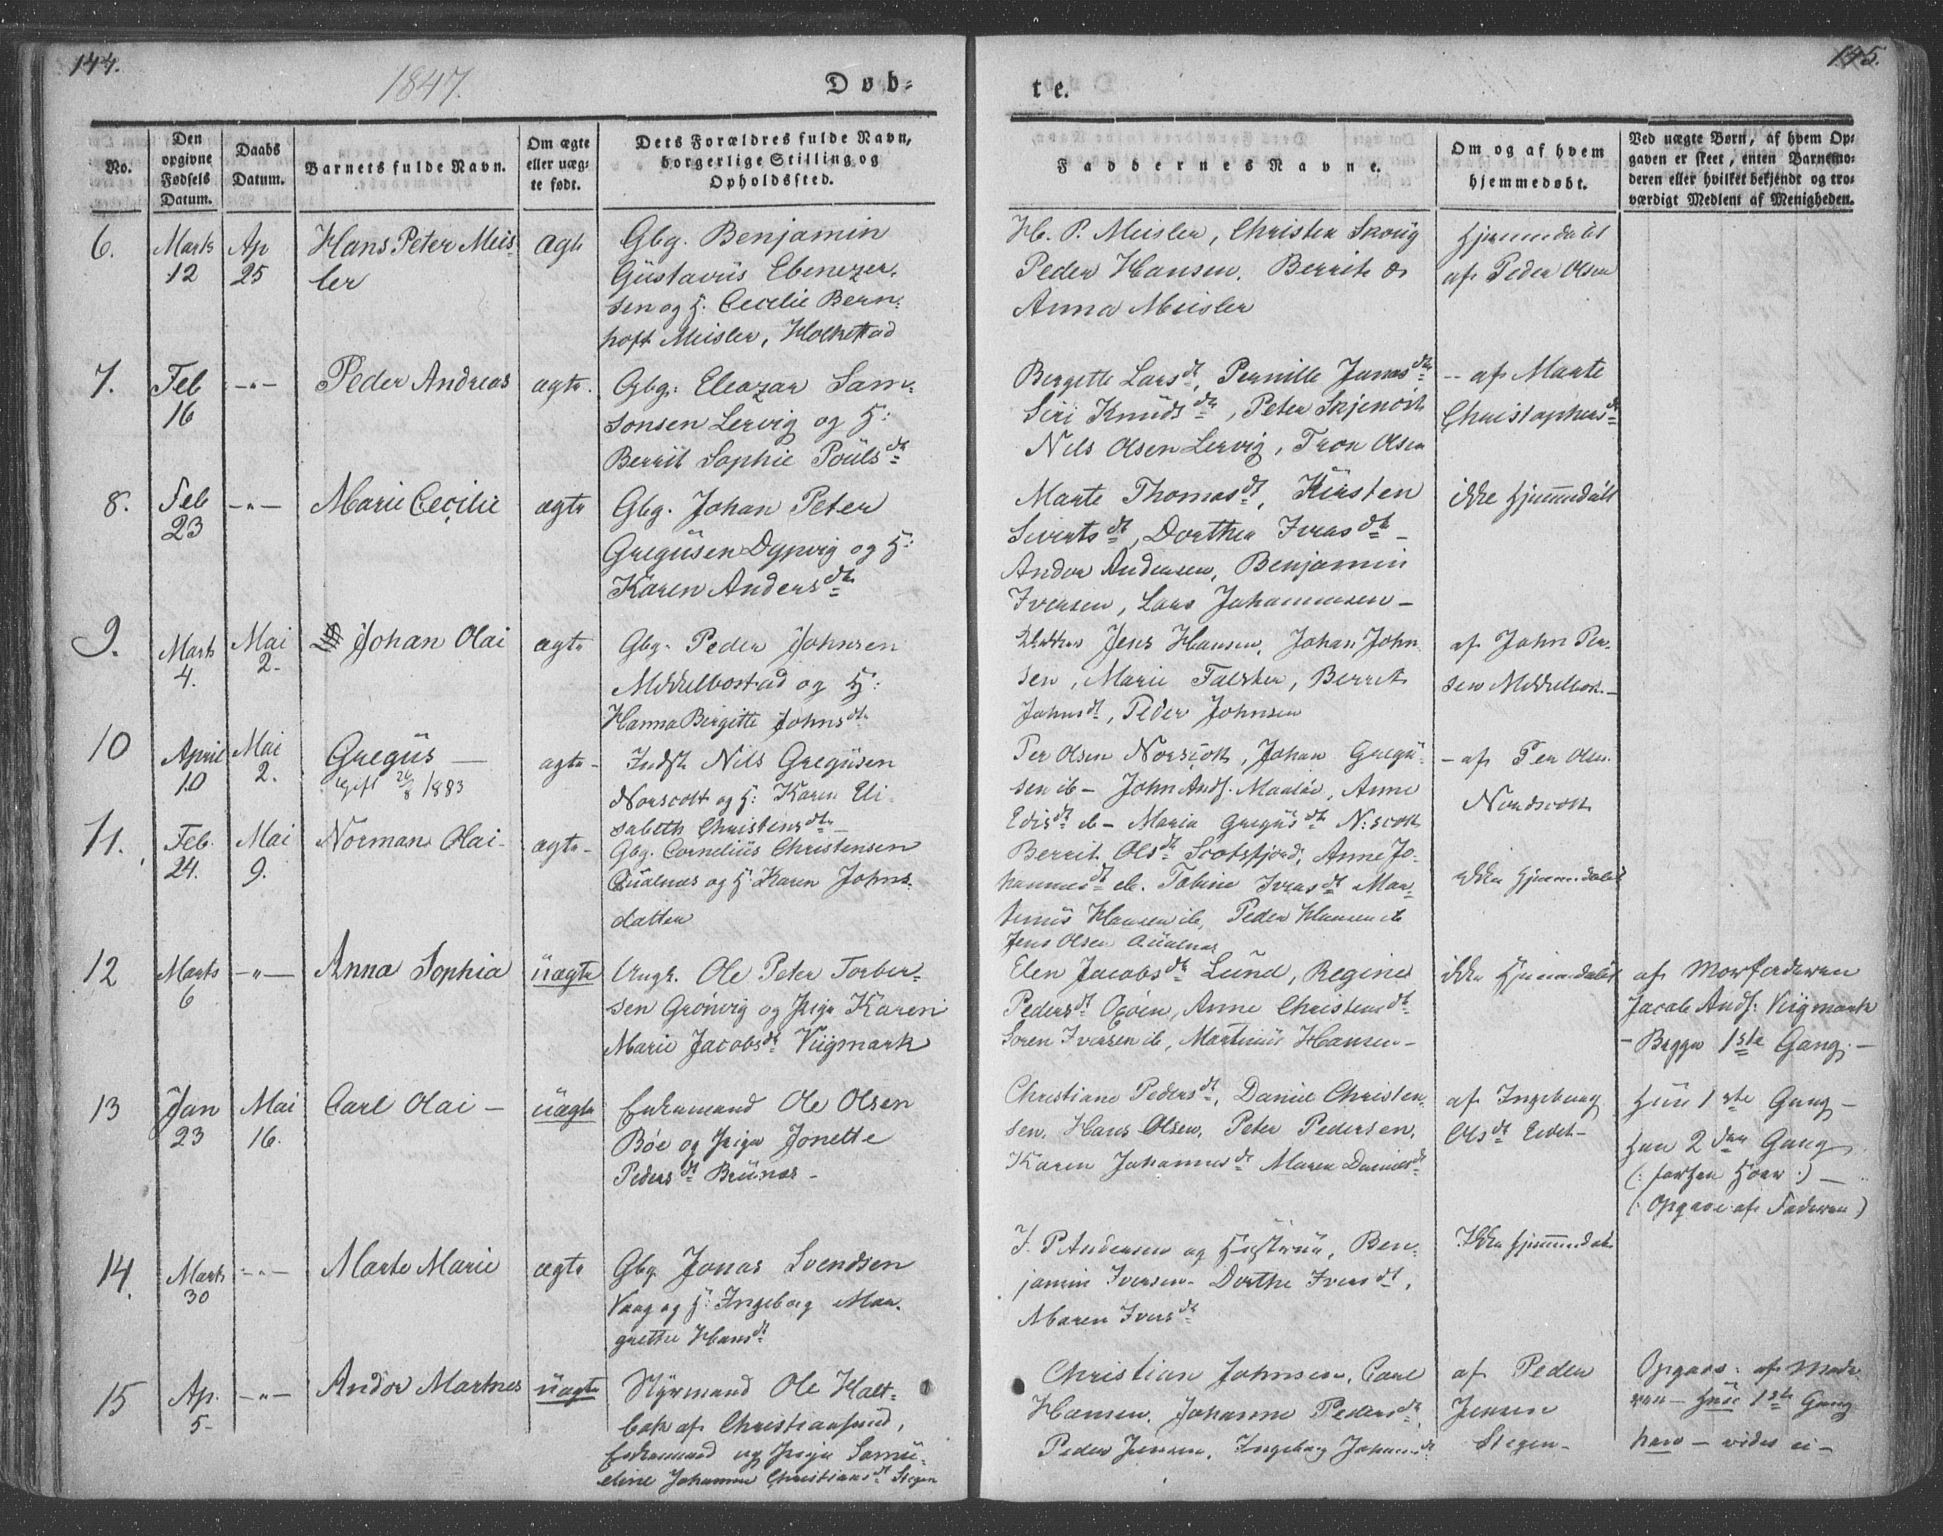 144.
1847.
Døb-
te.
145.
No.
Den opgivne Fødsels Datum.
Daabs Datum.
Barnets fulde Navn.
Om ægte eller uægte født.
Dets Forældres fulde Navn, borgerlige Stilling og Opholdssted.
Faddernes Navne.
Om og af hvem hjemmedøbt.
Ved uægte Børn, af hvem Opgaven er skeet, enten Barnemoderen eller hvilket bekjendt og troværdigt Medlem af Menigheden.
6.
Marts 12
Ap 25
Hans Peter Meis-
ler
ægte
Gbg. Benjamin
Gustavus Ebenezer-
sen og H. Cecilie Bern-
hoft Meisler, Holkestad
H. P. Meisler, Christen Skovig
Peder Hansen, Berrit &
Anna Meisler
Hjemmedøbt
af Peder Olsen
7.
Feb 16
-"-
Peder Andreas
ægte.
Gbg: Eleazar Sam-
sonsen Lervig og H:
Berrit Sophie Poulsdt
Bergette Larsdt, Pernille Jonasdtr
Siri Knudsdtr, Peter Skjenvik
Nils Olsen Lervig, Tron Olsen
- af Marte
Christophersdt
8.
Feb 23
-"-
Marie Cecilie
ægte
Gbg. Johan Peter
Gregusen Dypvig og H:
Karen Andersdtr
Marte Thomasdt, Kirsten
Sivertsdt, Dorthea Iversdt -
Andor Andersen, Benjamin
Iversen, Lars Johannesen -
ikke Hjemmedøbt
9.
Marts 4.
Mai 2.
Johan Olai
ægte
Gbg. Peder Johnsen
Middelbostad og H:
Hanna Birgitte Johnsdt.
Jens Hansen, Johan John
sen, Marie Falster, Berret
Johnsdt, Peder Johnsen
af John Per-
sen Middelbost-
10
April 10
Mai 2.
Gregus -
gift 26/8 1883
ægte -
Indst Nils Gregusen
Norscott og H: Karen Eli-
sabeth Christensdtr
Per Olsen Norscott, Johan Gregu-
sen ib - John Ands. Maaløe, Anne
Edisdt ib - Maria Gregusdtr N:scott
- af Per Olsen
Nordscott
11.
Feb. 24.
Mai 9.
Norman Olai -
ægte -
Gbg. Cornelius Christensen
Qualnæs og H. Karen Johns-
datter
Berrit Olsdt Scotsfjord, Anne Jo-
hannesdt ib. Tobine Iversdt Mar-
tinus Hansen ib, Peder Hansen ib
Jens Olsen Qualnæs
ikke Hjemmedøbt
12
Marts 6
-"-
Anna Sophia
uægte
Ungk. Ole Peter Torber-
sen Grønvig og Pige Karen
Marie Jacobsdt Viigmark
Elen Jacobsdtr Lund, Regine
Pedersdt Oxøien, Anne Christensdt
Søren Iversen ib, Martinus Hansen -
ikke Hjemmedøbt
af Morfaderen
Jacob Ands. Viigmark
- Begge 1ste Gang. -
13
Jan 23
Mai 16.
Carl Olai -
uægte
Enkemand Ole Olsen
Bøe og Pige Jonette
Pedersdt Brunæs -
Christiane Pedersdt, Daniel Christen-
sen, Hans Olsen, Peter Pedersen,
Karen Johannesdt Maren Danielsdt
af Ingeborg
Olsdt Eidet -
Hun 1ste Gang -
Han 2den Gang
(: forhen Hoer :) -
(: Opgave af Faderen)
14.
Marts 30
-"-
Marte Marie
ægte
Gbg Jonas Svendsen
Vaag og H: Ingeborg Mar-
grethe Hansdt
J. P. Andersen og Hustrue, Ben-
jamin Iversen - Dorthe Iversdt,
Maren Iversdt
Ikke hjemmedøbt
15
Ap. 5-
-"-
Andor Martines
uægte
Styrmand Ole Holt-
bak af Christiansund,
Enkemand og Pige Samu-
eline Johanna Christiansdt Stegen
Christian Johnsen, Carl
Hansen, Johanna Pedersdtr,
Peder Jensen, Ingeborg Johansdt
af Peder
Jensen
Stegen -
Opgave af Mode
ren - Hun 1ste Gang
han - vides ei -